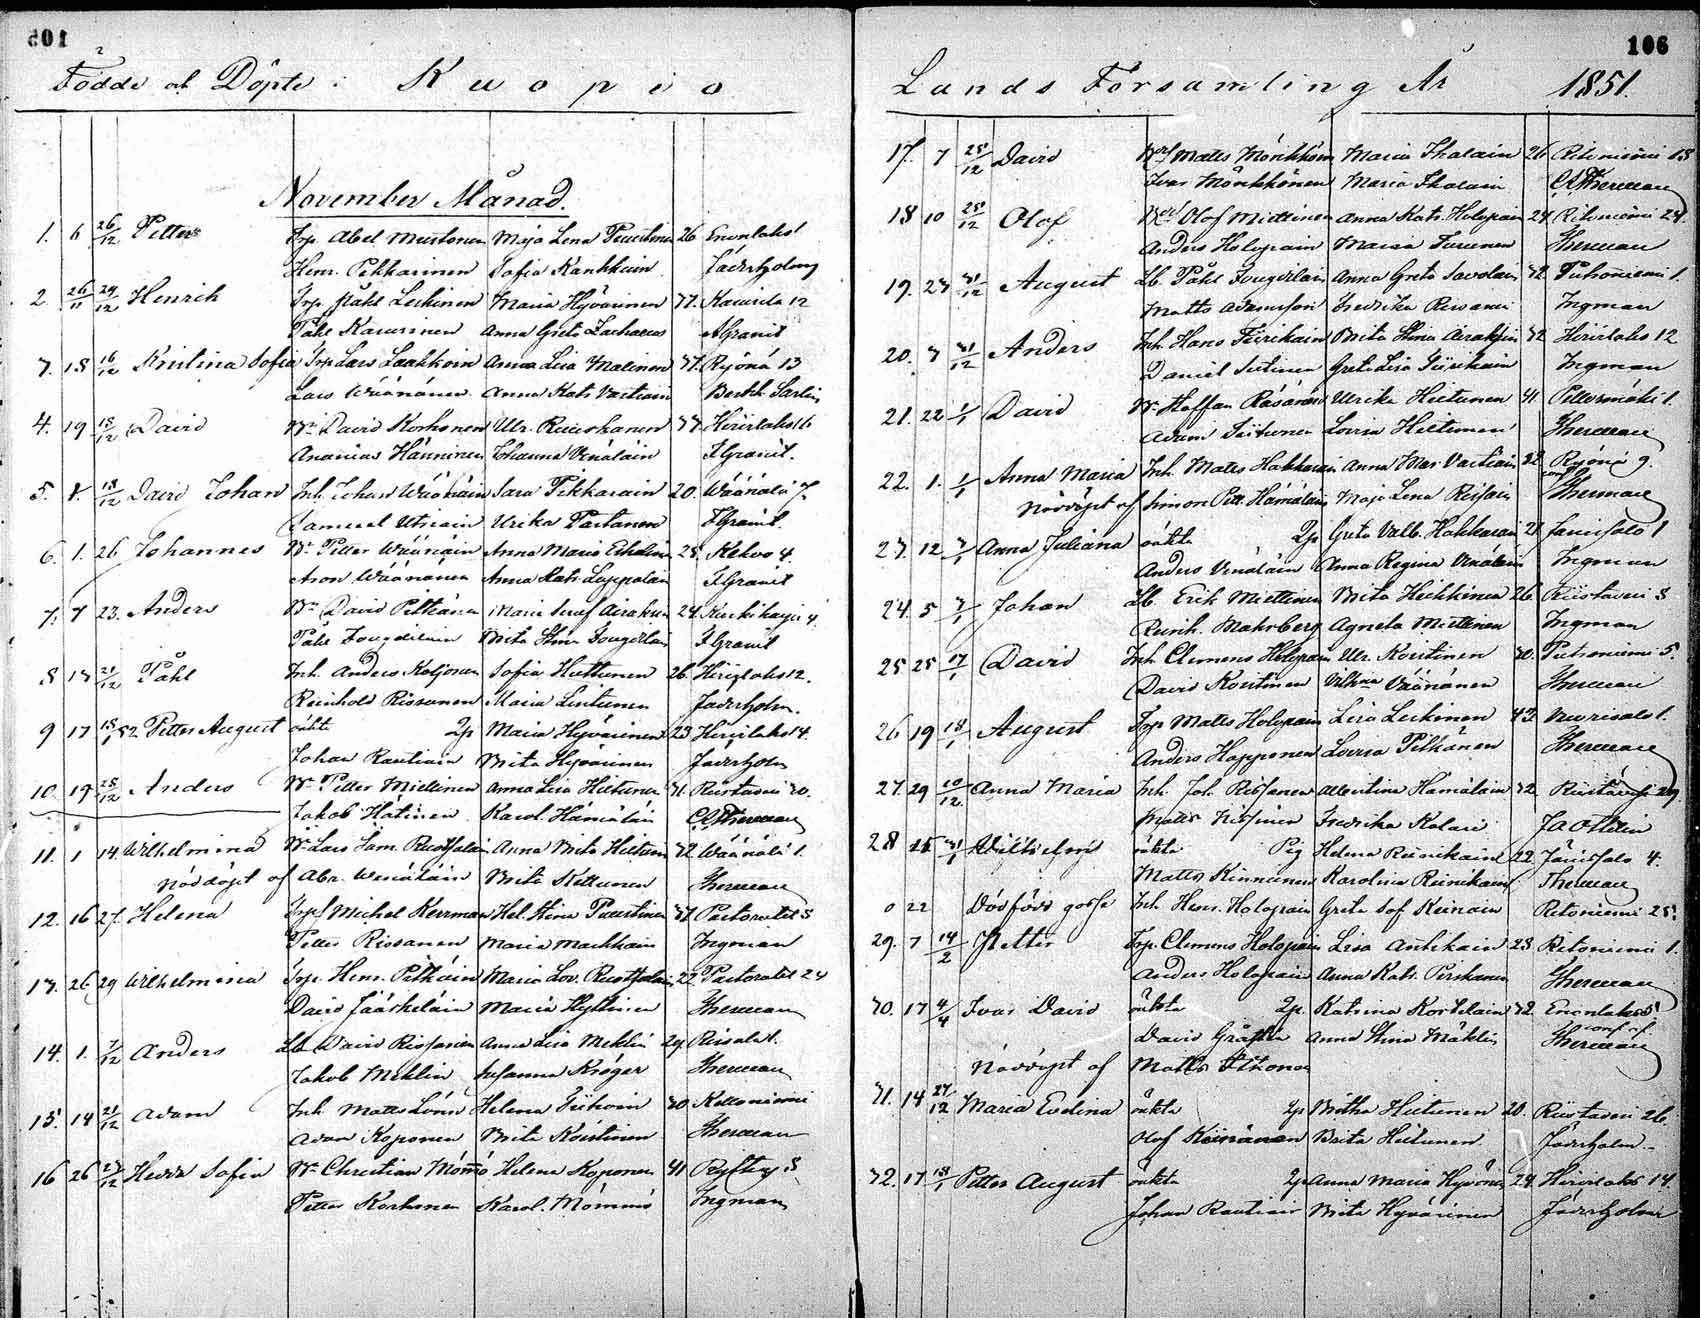 106
Födde och Döpte i Kuopio
Lands Församling År 1851.
November Månad.
1. 6 26/12 Petter Trp. Abel Mustonen Maja Lena Puustinen 26 Enonlaks 1
Henr. Pekkarinen Sofia Kankkuin Jäderholm
2. 26/11 29/12 Henrik Trp. Påhl Leskinen Maria Hyvärinen 37. Kaurila 12
Påhl Kaurinen Anna Greta A Granit
3. 18 16/12 Kristina Sofia Trp. Lars Laakkoin Anna Lisa Malinen 37. Ryönä 13
Lars Wäänänen Anna Kat. Vartiain Berth. Sarlin
4. 19 18/12 David Br David Korhonen Ulr. Ruuskanen 33 Hirvilaks 16
Ananias Hänninen Johanna Venäläin F Granit.
5. 8. 18/12 David Johan Inh. Johan Wäänäin Sara Pekkarain 20. Wäänälä 7.
Samuel Utriain Urika Partanen F Granit.
6. 1. 26 Johannes Br Petter Wäänäin Anna Maria 25. Kehvo 4
Aron Wäänänen Anna Kat. Lappalain F Granit
7. 7 23. Anders Br David Pitkänen Maria Airaksin 24. Kurkiharju 4.
Påhl Fougdilain Brita Stina Fougdilain F Granit
8 13 21/12 Påhl Inh. Anders Koljonen Sofia Huttunen 26. Hirvilaks 12.
Reinhold Rissanen Maria Lintunen Jäderholm.
9 17 18/1 52 Petter August oäkta 2p Maria Hyvärinen 23 Hirvilaks 14.
Johan Rautiain Brita Hyvärinen Jäderholm
10. 19 28/12 Anders Br Petter Miettinen Anna Lisa Hiltunen 31. Riistavesi 20.
Jakob Hätinen Karol. Hämäläin
11. 1 14 Wilhelmina Br Lars Sam. Anna Brita Hiltunen 32 Wäänälä 1.
nöddöpt af Abr. Wenäläin Brita Kettunen Therman
12. 16 27. Helena Trp. Michel Kerrman Hel. Stina Puustinen 31 Pastoratet 3
Petter Rissanen Maria Markkain Ingman
13. 26 29 Wilhelmina Trp. Henr. Pitkäin Maria Lov. 22 Pastoratet 24
David Jääskeläin Maria Hyttinen Therman
14. 1. 7/12 Anders Lb David Rissanen Anna Lisa Meklin 29. Riisala 1.
Jakob Meklin Susanna Kröger Therman
15. 14 21/12 Adam Inh. Matts Helena Tiihoin 30 Kettoniemi
Adam Koponen Brita Koistinen Therman
16 26 27/12 Hedda Sofia Br Christian Mömmö Helena Koponen 41
Petter Korhonen Karol. Mömmö Ingman
17. 7 28/12 David Matts Mönkkönen Maria Ihalain 26 Ritoniemi 18
Ivar Mönkkönen Maria Ihalain
18 10 28/12 Olof Olof Miettinen Anna Kats. Holopain 24 Ritoniemi 24.
Anders Holopain Maria Turunen Therman
19. 23 31/12 August Lb. Påhl Fougdilain Anna Greta Savolain 32. Puhoniemi 1.
Matts Adamsson Fredrika Ingman
20. 3 31/12 Anders Inh. Hans Tiirikain Brita Stina Airaksin 32 Hirvilaks 12
Daniel Sutinen Greta Lisa Tiirikain Ingman
21. 22 1/1 David Br Staffan Räsänen Ulrika Hiltunen 41. Pettersmäki 1.
Adam Tiihonen Lovisa Hiltunen Therman
22. 1. 1/1 Anna Maria Inh. Matts Hakkarain Anna Mar. Vartiain 32 Ryönä 9.
nöddöpt af Simon Pett. Hämäläin Maja Lena conf. Therman
23. 12 3/1 Anna Juliana oäkta 2p Greta Valb. Hakkarain 21 Jänissalo 1
Anders Venäläin Anna Regina Venäläin Ingman
24. 5 3/1 Johan Lb. Erik Miettinen Brita Heikkinen 26 Riistavesi 3
Reinh. Mahrberg Agneta Miettinen Ingman
25 25 17/1 David Inh. Clemens Holopain Ulr. Koistinen 30. Puhoniemi 5.
David Koistinen Vilhna Väänänen Therman
26 19 18/1 August Trp Matts Holopain Lisa Leskinen 43 Murisalo 1.
Anders Happonen Lovisa Pitkänen Therman
27. 29 10/12 Anna Maria Inh. Joh. Rissanen Albertina Hämäläin 32 Riistavesi 29
Matts Nissinen Fredrika
28 25 31/1 Vilhelmi oäkta Pig Helena Reinikain 22. Jänissalo 4.
Matts Kinnunen Karolina Reinikain Therman
0 22 Dödfödd gosse Inh Henr. Holopain Greta Sof Keinäin Ritoniemi 25.
29. 7 14/2 Petter Trp. Clemens Holopain Lisa Antikain 23 Ritoniemi 1.
Anders Holopain Anna Katr. Pirskanen Therman
30. 17 4/4 Ivar David oäkta 2p. Katrina Kortelain 32. Enonlaks 5
David Anna Stina Mäklin conf. af. Therman
Nöddöpt af Matts Itkonen
31. 14 27/12 Maria Evelina oäkta 2p Britha Hiltunen 20. Riistavesi 26.
Olof Keinänen Brita Hiltunen. Jäderholm
32. 17 18/1 Petter August oäkta 2p Anna Maria Hyvönen 24. Hirvilaks 14.
Johan Rautiain Brita Hyvärinen Jäderholm